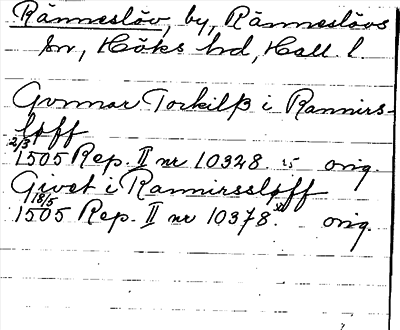 Ränneslöv, by, Ränneslövs
sn, Höks hd, Hall. l
Gunnar Torkilß i Rannirs-
løff
2/3
1505 Rep. II nr 10328 orig.
Givet i Rannirssløff
18/5
1505 Rep. II nr 10378. orig.